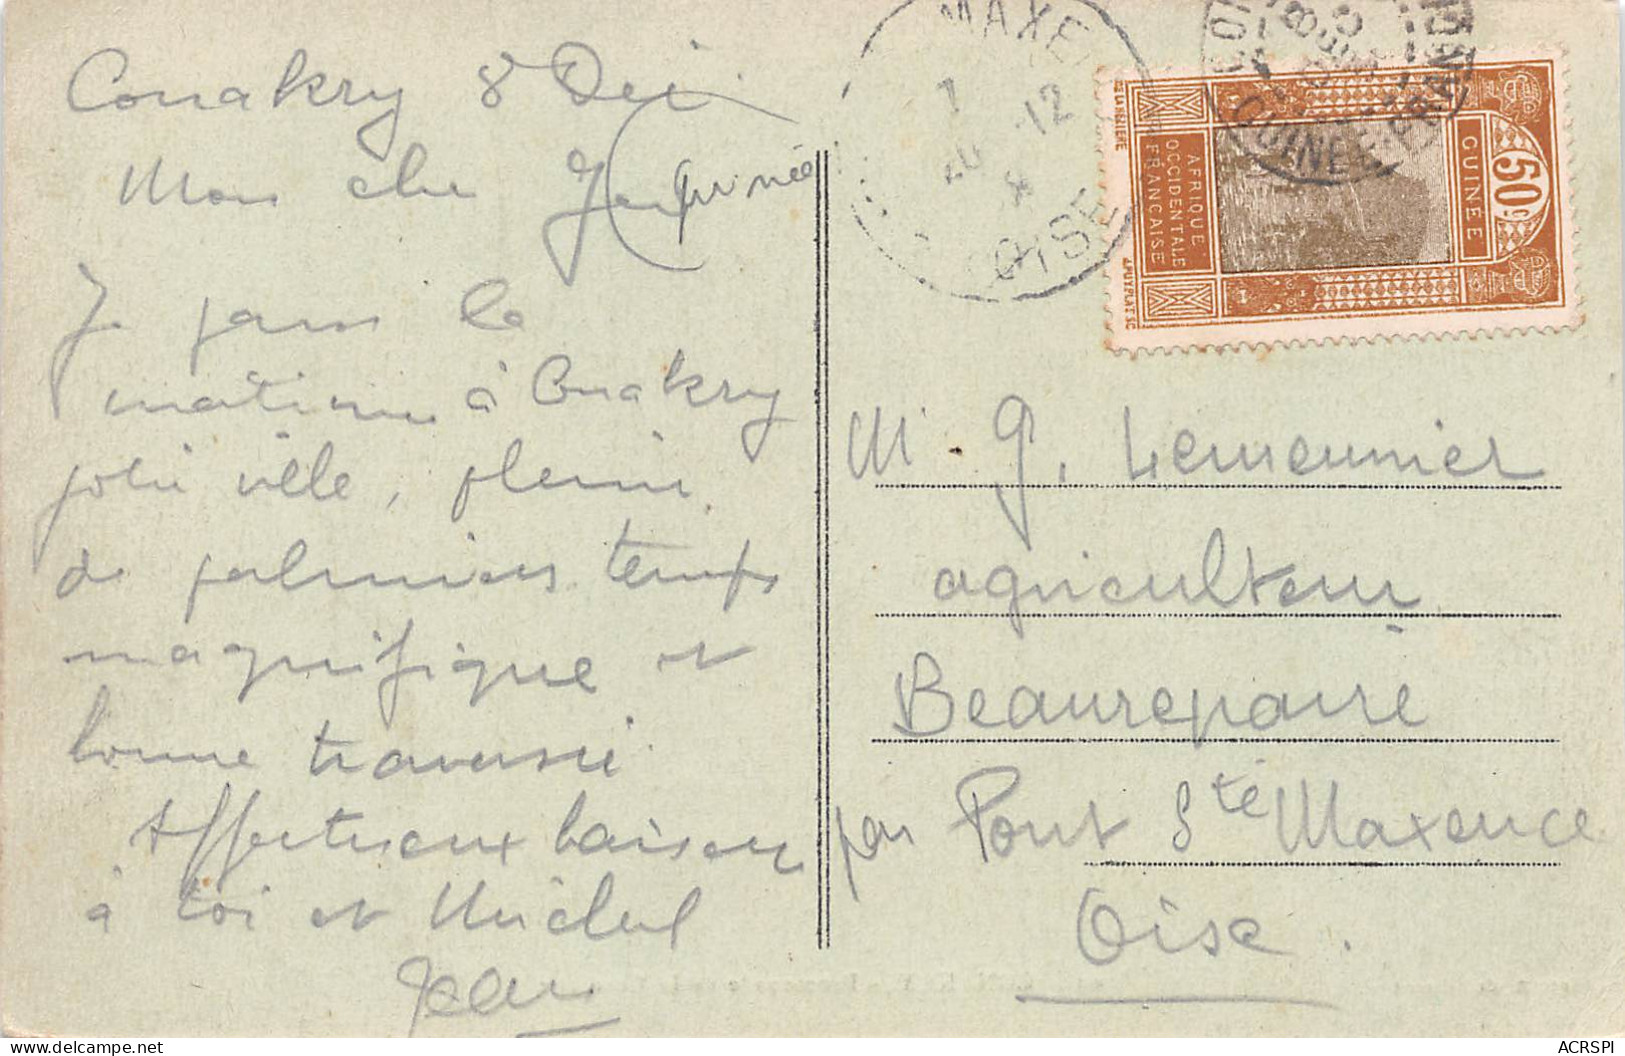 Conakry 8 Déc
(Guinée)
Mon cher
Je passe la
matinée à Conakry
jolie ville, pleine
de palmiers temps
magnifique et
bonne traversée.
Affectueux baisers
à toi et Michel
Jean
MAXE
12
OISE
GUINEE
50c
GUINEE
AFRIQUE
OCCIDENTALE
FRANÇAISE
Mr. G. Lemeunier
agriculteur
Beaurepaire
par Pont Ste Maxence
Oise.
ACRSPI